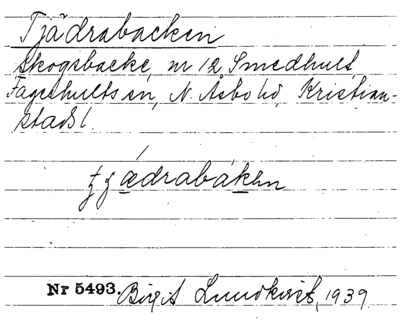 Tjädrabacken
Skogsbacke, nr 12 Smedhult,
Fagerhults sn, N. Åsbo hd, Kristian-
stads l
ƫȷǽdrabàkɐn
Nr 5493. Birgit Lundkvist, 1939